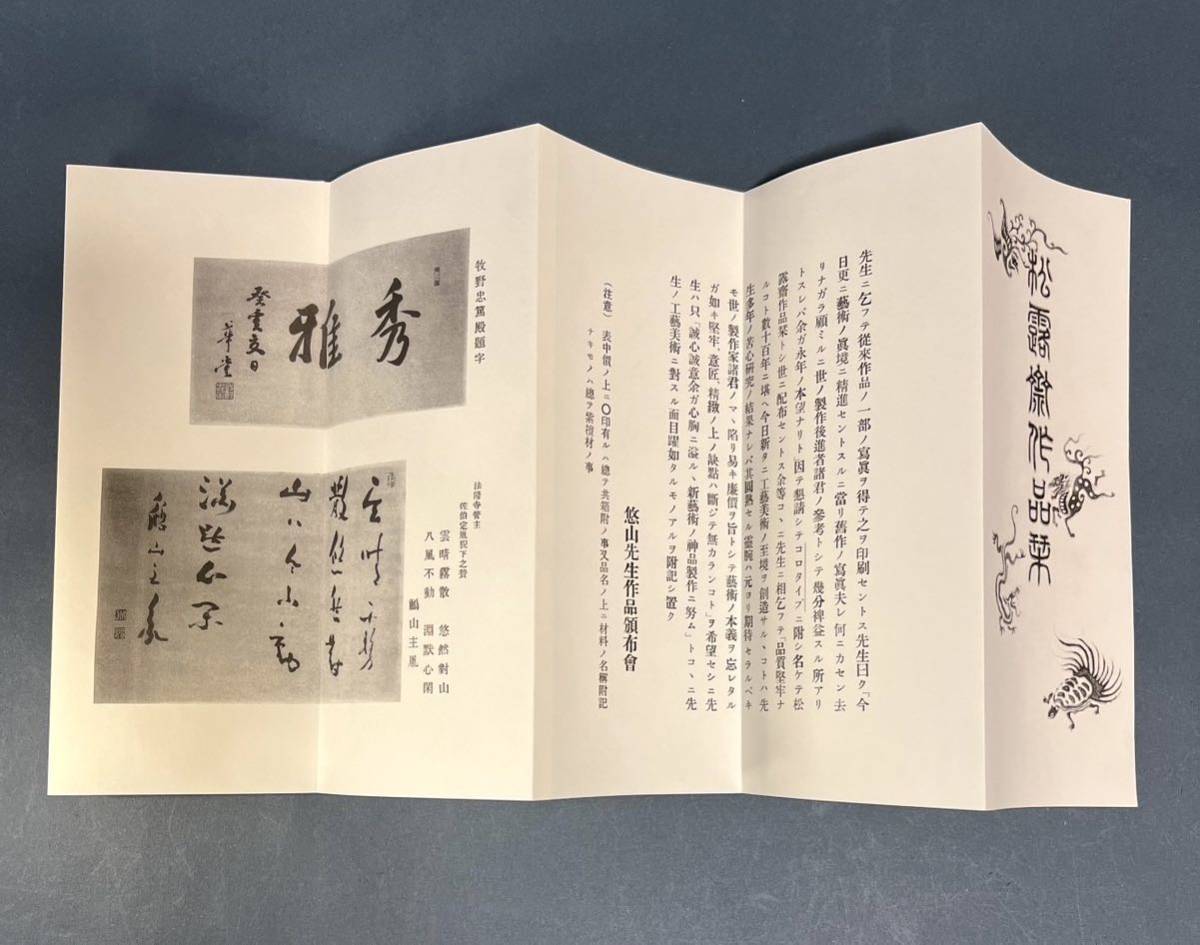 松露齋作品栞
先生ニ乞フテ從來作品ノ一部ノ寫眞ヲ得テ之ヲ印刷セントス先生曰ク「今
日更ニ藝術ノ眞境ニ精進セントスルニ當リ舊作ノ寫眞夫レ何ニカセン去
リナガラ顧ミルニ世ノ製作後進者諸君ノ參考トシテ幾分裨益スル所アリ
トスレバ余ガ永年ノ本望ナリト」因テ懇請シテコロタイプニ附シ名ケテ松
露齋作品栞トシ世ニ配布セントス余等コヽニ先生ニ相乞フテ「品質堅牢ナ
ルコト數十百年ニ堪ヘ今日新タニ工藝美術ノ至境ヲ創造サルヽコトハ先
生多年ノ苦心研究ノ結果ナレバ其圓熟セル靈腕ハ元ヨリ期待セラルベキ
モ世ノ製作家諸君ノマヽ陷リ易キ廉價ヲ旨トシテ藝術ノ本義ヲ忘レタル
ガ如キ堅牢、意匠、精緻ノ上ノ缺點ハ斷ジテ無カランコト」ヲ希望セシニ先
生ハ只「誠心誠意余ガ心胸ニ溢ルヽ新藝術ノ神品製作ニ努ム」トコヽニ先
生ノ工藝美術ニ對スル面目躍如タルモノアルヲ附記シ置ク
悠山先生作品頒布會
(注意) 表中價ノ上ニ〇印有ルハ總テ共箱附ノ事又品名ノ上ニ材料ノ名稱附記
ナキモノハ總テ紫檀材ノ事
牧野忠篤殿題字
秀
雅
癸亥夏日
華堂
法隆寺管主
佐伯定胤猊下之贊
雲晴霧散 悠然對山
八風不動 淵默心閑
鵤山主胤